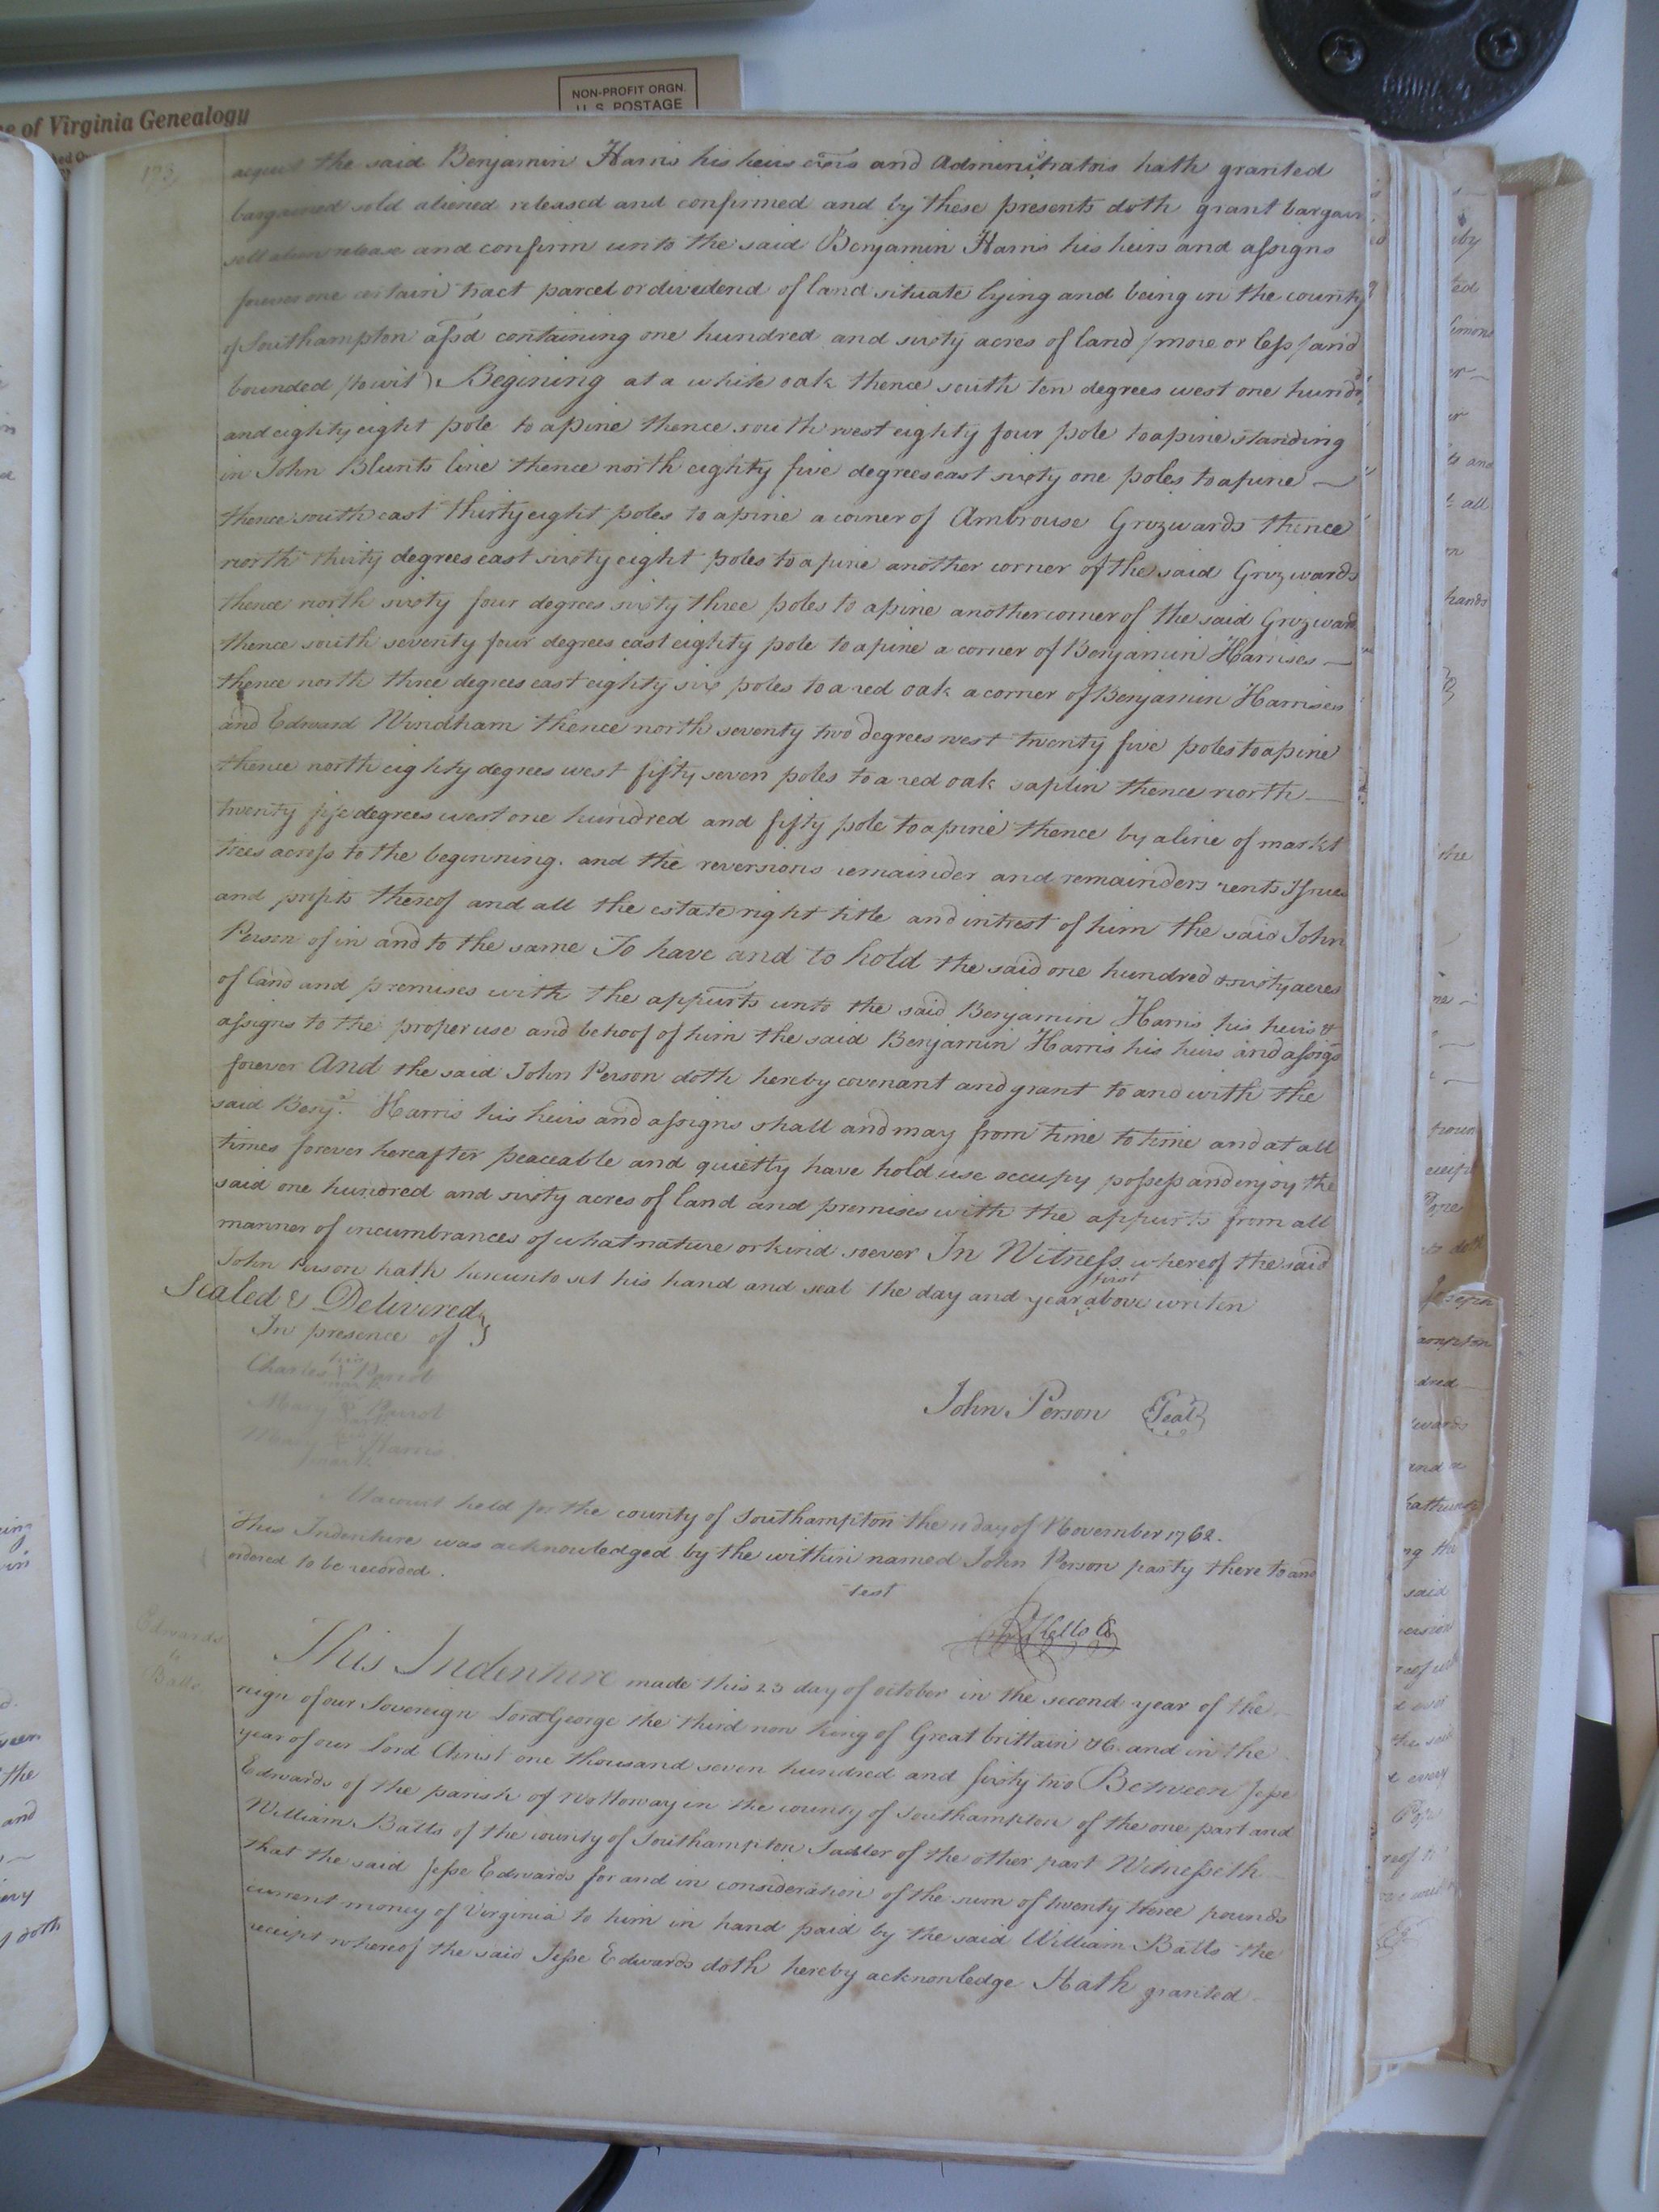 NON-PROFIT ORGN.
U. S. POSTAGE
of Virginia Genealogy
173
acquit the said Benjamin Harris his heirs exrs and Administrators hath granted
bargained sold aliened released and confirmed and by these presents doth grant bargain
sell alien release and confirm unto the said Benjamin Harris his heirs and assigns
forever one certain tract parcel or dividend of land situate lying and being in the county
of Southampton afsd containing one hundred and sixty acres of land /more or less/ and
bounded (towit) Begining at a white oak thence south ten degrees west one hundd
and eighty eight pole to a pine thence south west eighty four pole to a pine standing
in John Blunts line thence north eighty five degrees east sixty one poles to a pine
thence south east thirty eight poles to a pine a corner of Ambrouse Grozwards thence
north thirty degrees east sixty eight poles to a pine another corner of the said Grozwards
thence north sixty four degrees sixty three poles to a pine another corner of the said Grozward
thence south seventy four degrees east eighty pole to a pine a corner of Benjamin Harrises
thence north three degrees east eighty six poles to a red oak a corner of Benjamin Harrises
and Edward Windham thence north seventy two degrees west twenty five poles to a pine
thence north eighty degrees west fifty seven poles to a red oak saplin thence north
twenty degrees west one hundred and fifty pole to a pine thence by a line of markt
trees across to the beginning. and the reversions remainder and remainders rents Issues
and profits thereof and all the estate right title and intrest of him the said John
Person of in and to the same To have and to hold the said one hundred & sixty acres
of land and premises with the appurts unto the said Benjamin Harris his heirs &
assigns to the proper use and behoof of him the said Benjamin Harris his heirs and assigs
forever And the said John Person doth hereby covenant and grant to and with the
said Benja. Harris his heirs and assigns shall and may from time to time and at all
times forever hereafter peaceable and quietly have hold use occupy possess and enjoy the
said one hundred and sixty acres of land and premises with the appurts from all
manner of incumbrances of what nature or kind soever In Witness whereof the said
John Person hath hereunto set his hand and seal the day and year first above writen
Sealed & Delivered
In presence of
Charles his mark
Mary
Harris
mark
John Person Seal
At a court held for the county of Southampton the 11 day of November 1762.
This Indenture was acknowledged by the within named John Person party there to and
ordered to be recorded.
test
Kello
Edwards
to
Batts
This Indenture made this 23 day of october in the second year of the
reign of our Sovereign Lord George the third now king of Great brittain &c. and in the
year of our Lord Christ one thousand seven hundred and sixty two Between Jesse
Edwards of the parish of Nottoway in the county of Southampton of the one part and
William Batts of the county of Southampton Sadler of the other part Witnesseth
that the said Jesse Edwards for and in consideration of the sum of twenty three pounds
current money of Virginia to him in hand paid by the said William Batts the
receipt whereof the said Jesse Edwards doth hereby acknowledge Hath granted